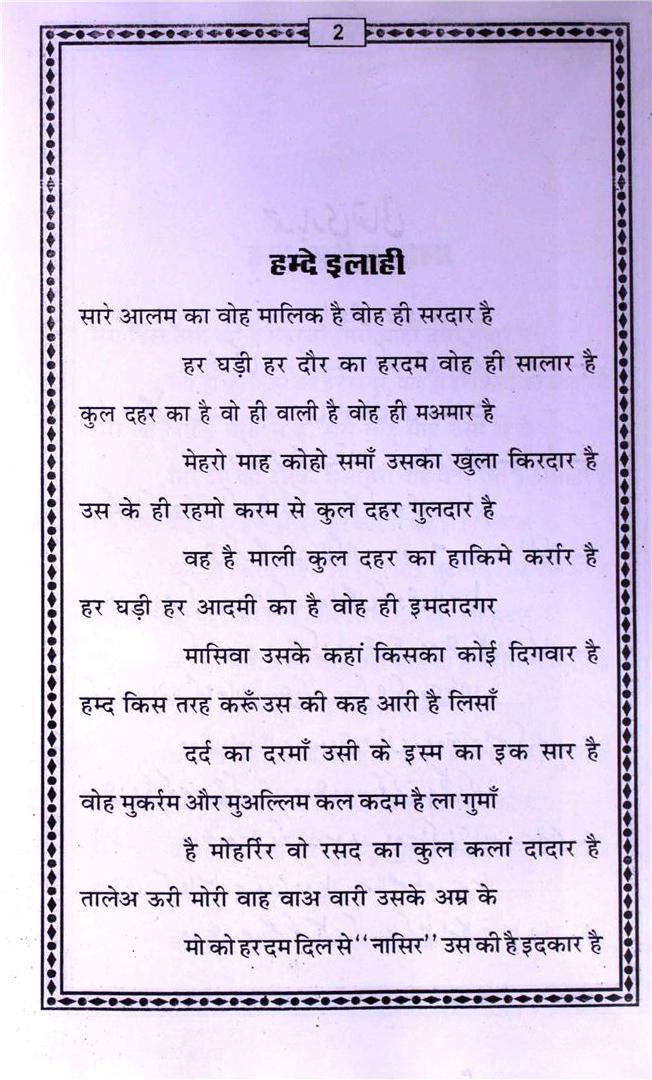 2
हम्दे इलाही
सारे आलम का वोह मालिक है वोह ही सरदार है
हर घड़ी हर दौर का हरदम वोह ही सालार है
कुल दहर का है वो ही वाली है वोह ही मअमार है
मेहरो माह कोहो समाँ उसका खुला किरदार है
उस के ही रहमो करम से कुल दहर गुलदार है
वह है माली कुल दहर का हाकिमे कर्रार है
हर घड़ी हर आदमी का है वोह ही इमदादगर
मासिवा उसके कहां किसका कोई दिगवार है
हम्द किस तरह करूँ उस की कह आरी है लिसाँ
दर्द का दरमाँ उसी के इस्म का इक सार है
वोह मुकर्रम और मुअल्लिम कल कदम है ला गुमाँ
है मोहर्रिर वो रसद का कुल कलां दादार है
तालेअ ऊरी मोरी वाह वाअ वारी उसके अम्र के
मो को हर दम दिल से ‘‘नासिर’’ उस की है इदकार है